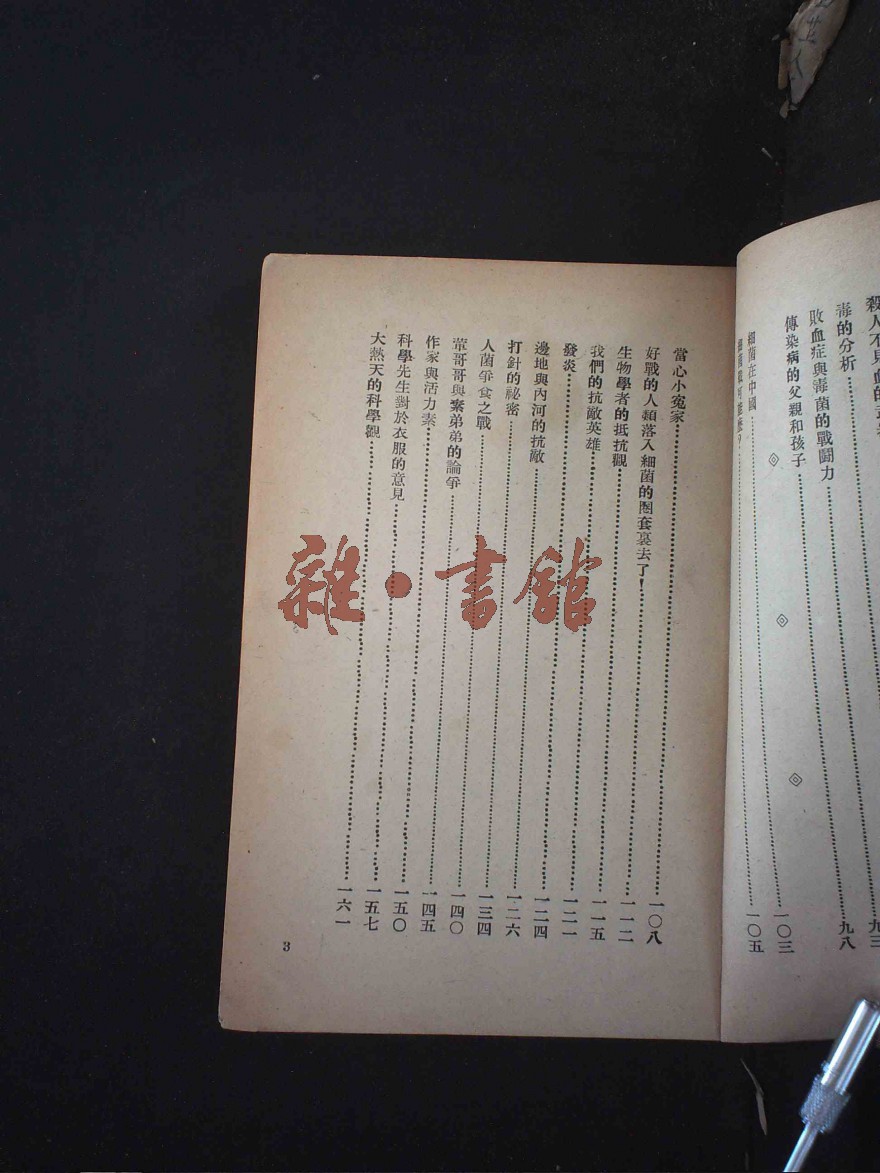 殺人不見血的
毒的分析……九三
敗血症與毒菌的戰鬪力……九八
傳染病的父親和孩子……
細菌在中國……一〇三
……一〇五
當心小冤家……一〇八
好戰的人類落入細菌的圈套裏去了！……一一二
生物學者的抵抗觀……一一五
我們的抗敵英雄……一二一
發炎……一二四
邊地與內河的抗敵……一二六
打針的秘密……一三四
人菌爭食之戰……一四〇
葷哥哥與素弟弟的論爭……一四五
作家與活力素……一五〇
科學先生對於衣服的意見……一五七
大熱天的科學觀……一六一
3
雜·書館